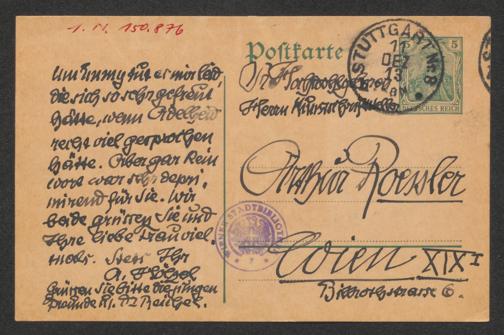 I.N. 150.876
Postkarte
STUTTGART No 8
11
DEZ
13
5
5
DEUTSCHES REICH
Um Emmy tut es mir leid
die sich so sehr gefreut
hätte, wenn Adelheid
recht viel gesprochen
hätte. Aber gar kein
Wort war sehr depri-
mirend für Sie. Wir
beide grüssen Sie und
Ihre liebe Frau viel-
mals. Stets Ihr
A. Hölzel
Grüssen Sie bitte die jungen
Freunde
Herrn Kunstschriftsteller
Arthur Roessler
Wien XIX I
Billrothstrasse 6.
WIENER STADTBIBLIOTHEK